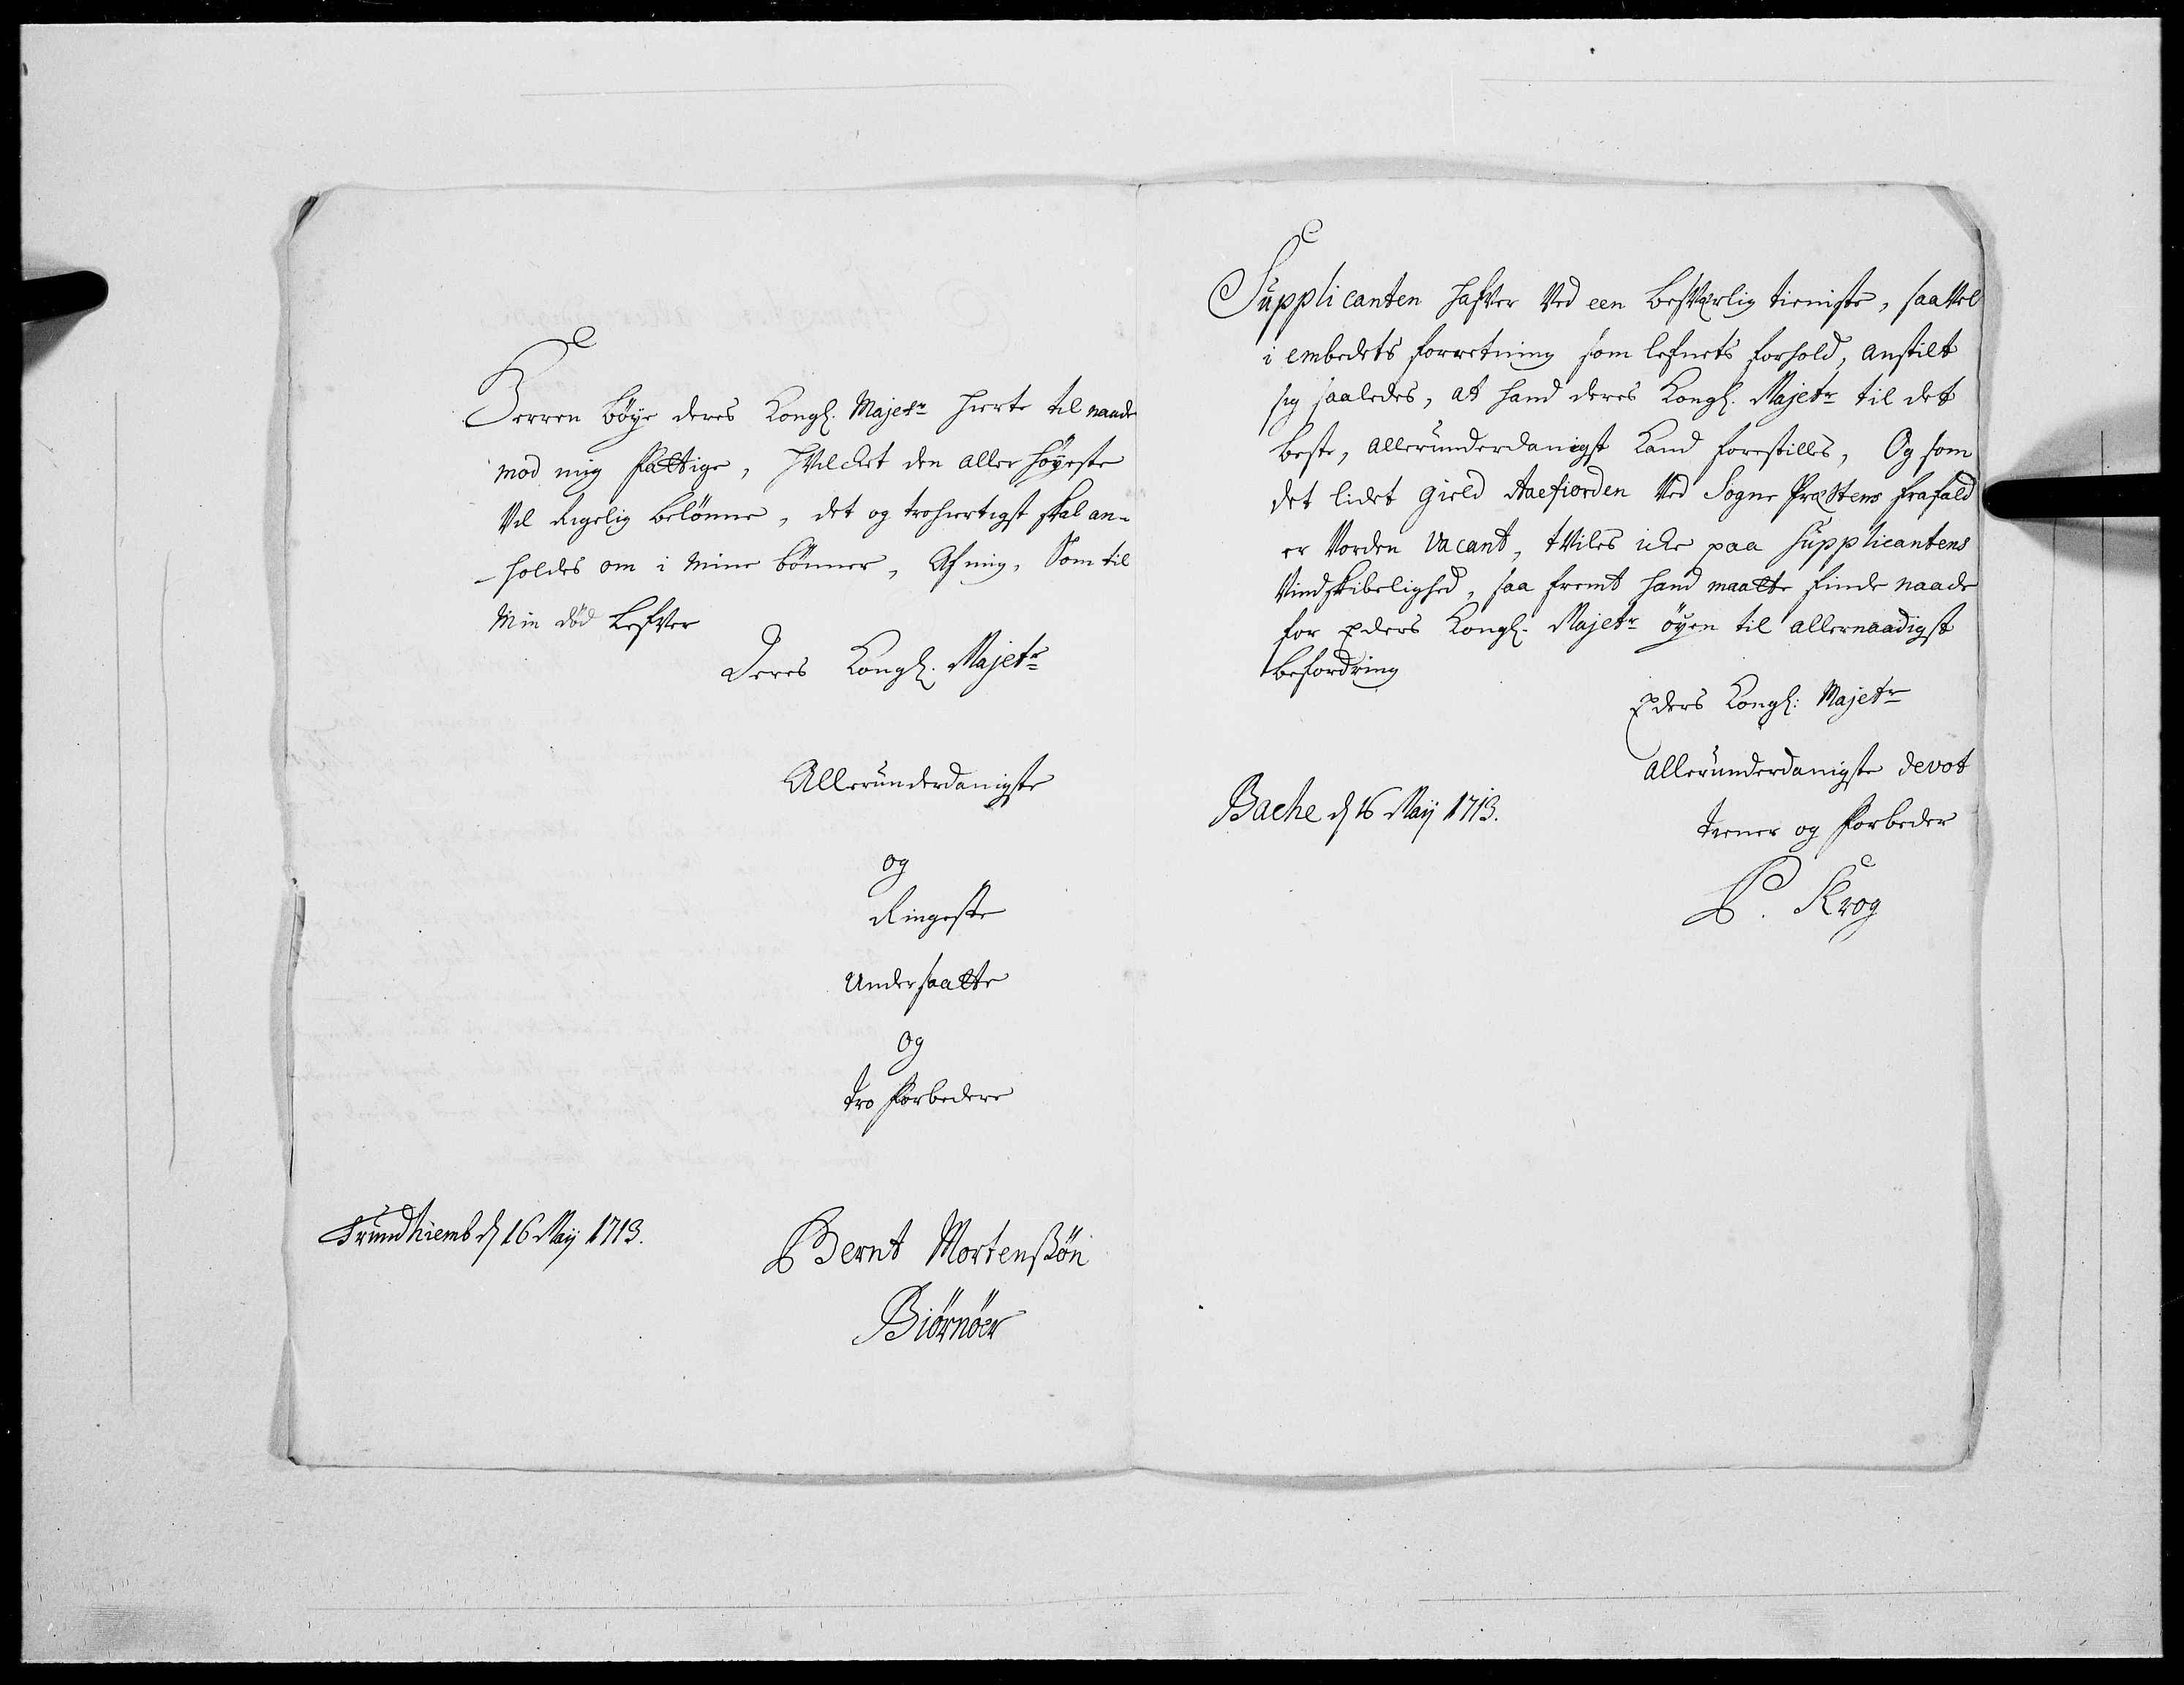 Herren böye deres Kongl. Majets hierte til naade
mod mig fattige, hvilchet den aller höyeste
vil rigelig belönne, det og trohiertigst skal an-
-holdes om i mine bönner, Af mig, Som til
min död lefver
Deres Kongl. Majets
Alleründerdanigste
og
Ringeste
Undersaatte
og
tro forbedere
Trundhiemb d 16 Maij 1713.
Bernt Mortenßön
Biörnöer
Supplicanten hafver ved een besværlig tieniste, saavel
i embedets forretning som lefnets forhold, anstilt
sig saaledes, at hand deres Kongl. Majets til det
beste, alleründerdanigst kand forestilles, Og som
det lidet gield Aaefiorden ved Sogne Præstens frafald
er vorden vacant, tviles iche paa supplicantens
vindskibelighed, saa fremt hand maatte finde naade
for Eders Kongl. Majets öyen til allernaadigst
befordring
Eders Kongl: Majets
alleründerdanigste devot
tiener og forbeder
Bache d 16 Maij 1713.
P. Krog